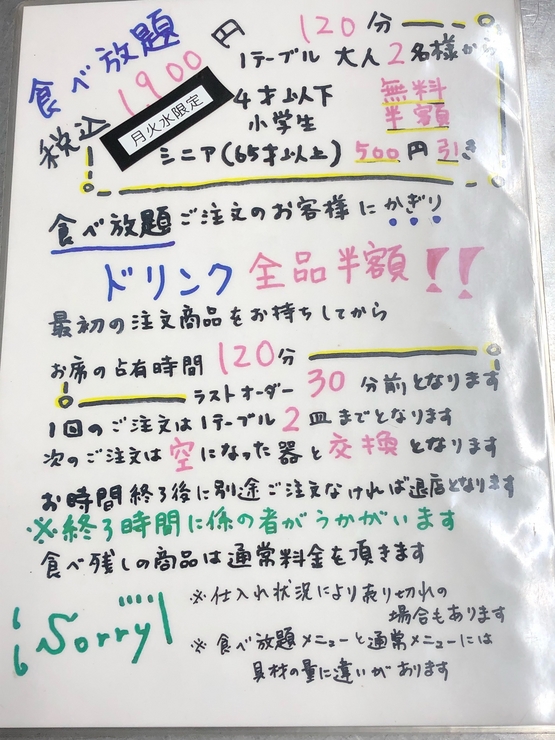 食べ放題
1900円
税込
月火水限定
120分
1テーブル 大人2名様から
4才以下 無料
小学生 半額
シニア(65才以上) 500円引き
食べ放題ご注文のお客様にかぎり
ドリンク 全品半額!!
最初の注文商品をお持ちしてから
お席の占有時間 120分
ラストオーダー 30分前となります
1回のご注文は1テーブル2皿までとなります
次のご注文は空になった器と交換となります
お時間終了後に別途ご注文なければ退店となります
※終了時間に係の者がうかがいます
食べ残しの商品は通常料金を頂きます
Sorry!
※仕入れ状況により売り切れの
場合もあります
※食べ放題メニューと通常メニューには
具材の量に違いがあります